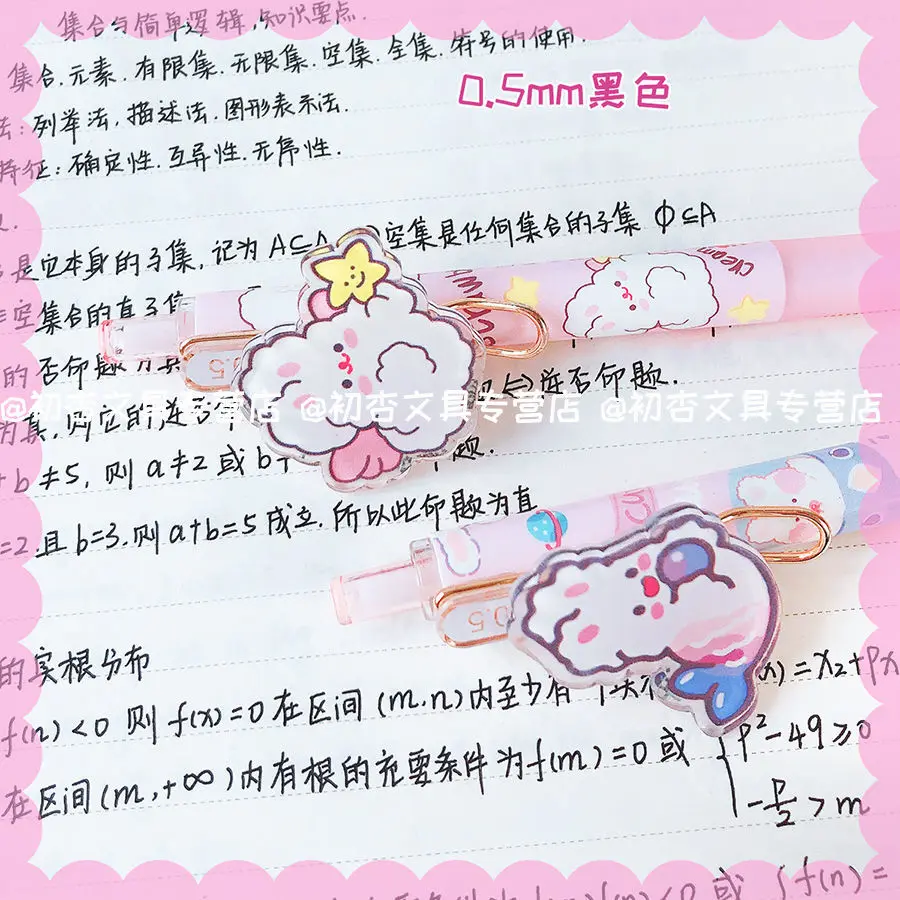 集合与简单逻辑,知识要点.
集合.元素.有限集.无限集.空集.全集.符号的使用.
0.5mm黑色
法:列举法,描述法.图形表示法.
特征:确定性.互异性.无序性.
是它本身的子集,记为 A⊆A 空集是任何集合的子集 Φ⊆A
空集合的真子集
Cream
0.5
的否命题为真 逆否命题.
@初杏文具专营店 @初杏文具专营店 @初杏文具专营店
为真.则它的逆否
+b≠5, 则 a≠2 或 b 题.
=2.且 b=3.则 a+b=5 成立.所以此命题为真
0.5
的实根分布
f(n)<0 则 f(x)=0 在区间 (m.n) 内至少有一个实 (x)=x2+px
在区间(m,+∞)内有根的充要条件为f(m)=0 或 { p²-49≥0
-p/2>m
f(n)<0 或 { f(n)=